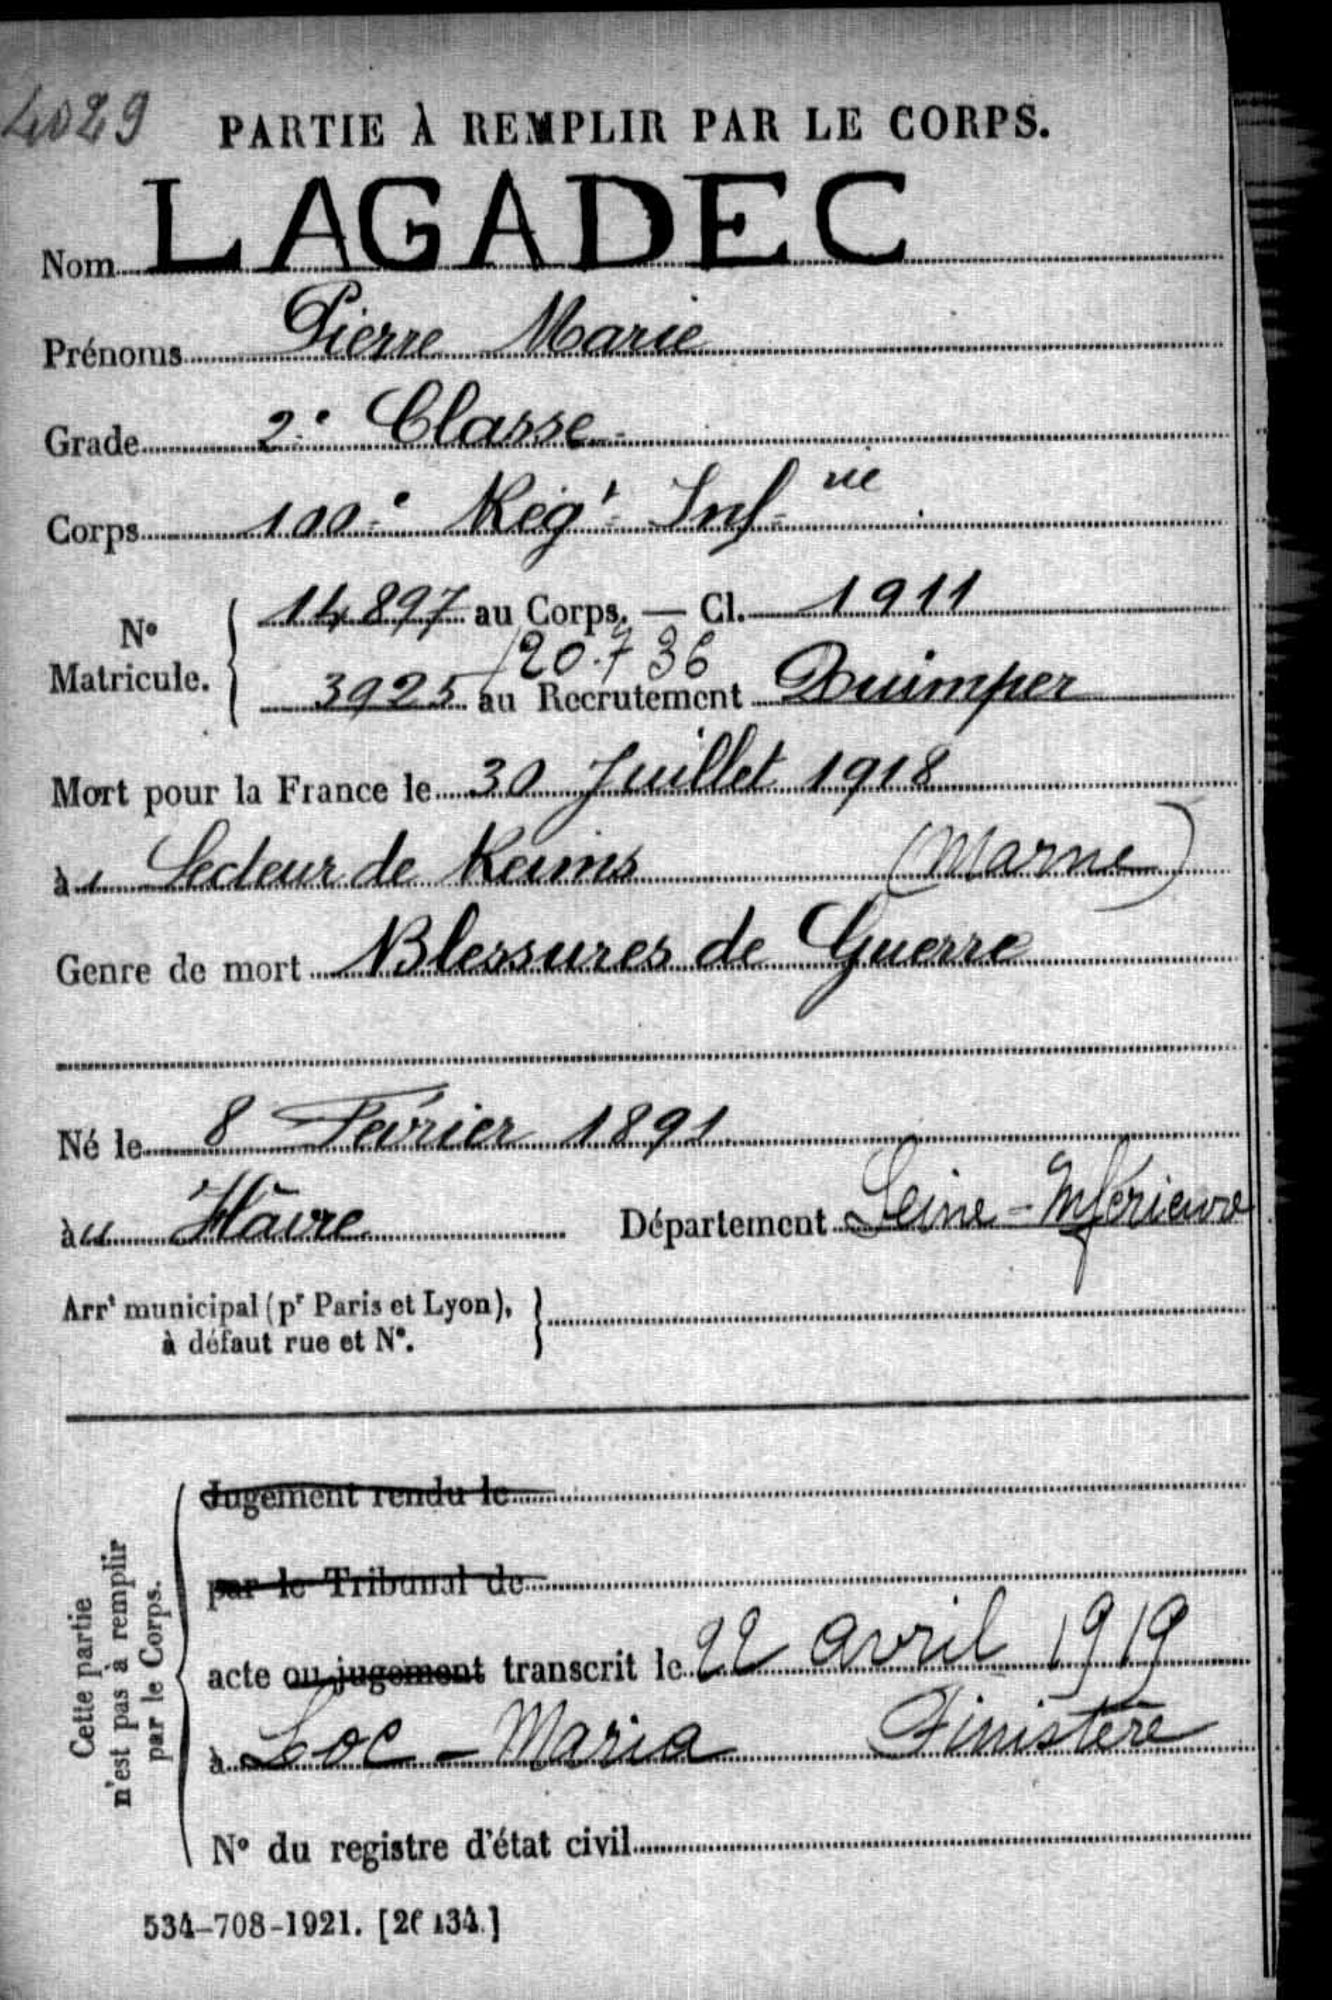 4029
PARTIE À REMPLIR PAR LE CORPS.
Nom LAGADEC
Prénoms Pierre Marie
Grade 2e Classe
Corps 100e Régt Infrie
14897 au Corps. — Cl. 1911
N° Matricule.
20.736
3925 au Recrutement Quimper
Mort pour la France le 30 Juillet 1918
à Secteur de Reims (Marne)
Genre de mort Blessures de Guerre
Né le 8 Février 1891
au Hâvre Département Seine-Inférieure
Arrt municipal (pr Paris et Lyon), à défaut rue et N°.
Jugement rendu le
par le Tribunal de
acte ou jugement transcrit le 22 avril 1919
à Loc-Maria Finistère
N° du registre d'état civil
Cette partie
n'est pas à remplir
par le Corps.
534-708-1921.